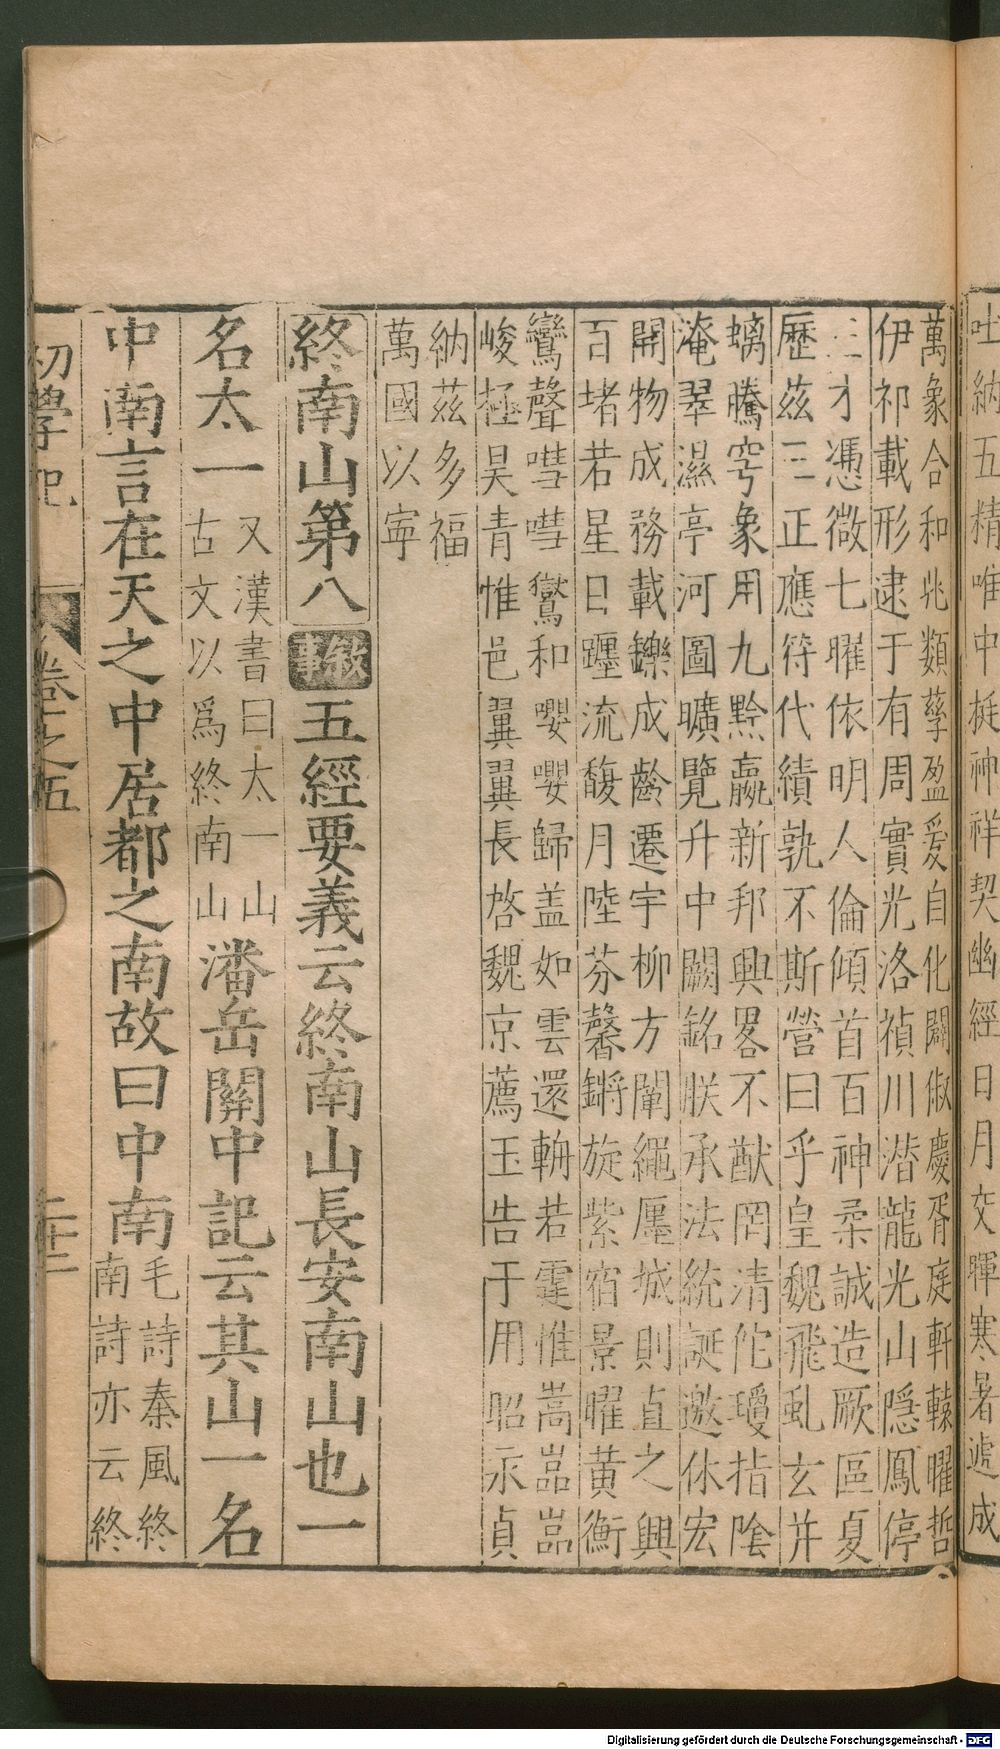 吐納五精唯中挺神祥契幽經日月交暉寒暑遞成
萬象合和兆類孳盈爰自化闢俶慶胥庭軒轅曜哲
伊祁載形逮于有周實光洛禎川潛龍光山隱鳳停
三才憑微七曜依明人倫傾首百神柔誠造厥區夏
歷茲三正應符代績孰不斯營曰乎皇魏飛虬玄并
螭騰穹象用九黔嬴新邦興畧不猷罔清佗璦指陰
淹翠濕亭河圖曠覽升中闕銘朕承法統誕邀休宏
開物成務載鑠成齡遷宇柳方闡繩廛城則直之興
百堵若星日躔流馥月陸芬馨鏘旋紫宿景曜黃衡
鸞聲嘒嘒鸑和嚶嚶歸盖如雲還輈若霆惟嵩嵓嵓
峻極昊青惟邑翼翼長啓魏京薦玉告于用昭永貞
納茲多福
萬國以寜
終南山第八 敘事 五經要義云終南山長安南山也一
名太一 又漢書曰太一山
古文以爲終南山 潘岳關中記云其山一名
中南言在天之中居都之南故曰中南 毛詩秦風終
南詩亦云終
初學記 卷之五 二十二
Digitalisierung gefördert durch die Deutsche Forschungsgemeinschaft - DFG